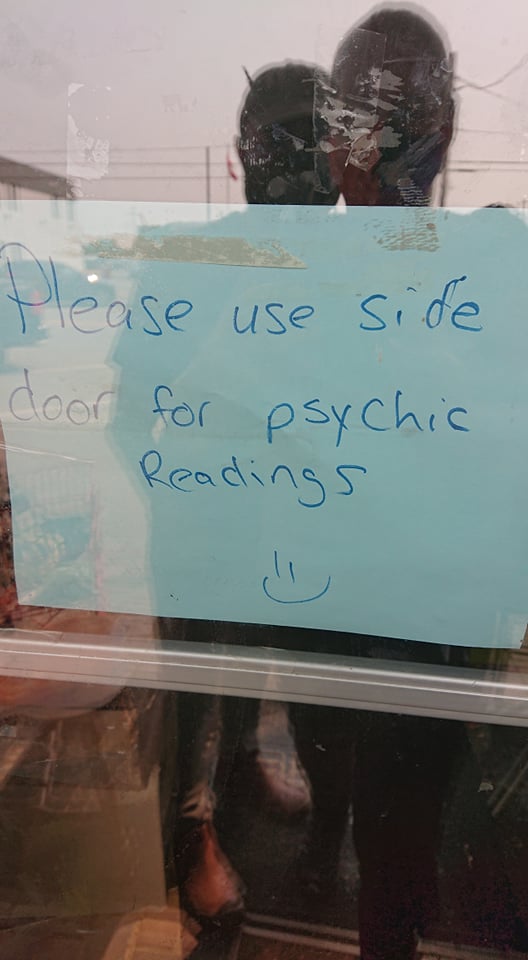 Please use side
door for psychic
Readings